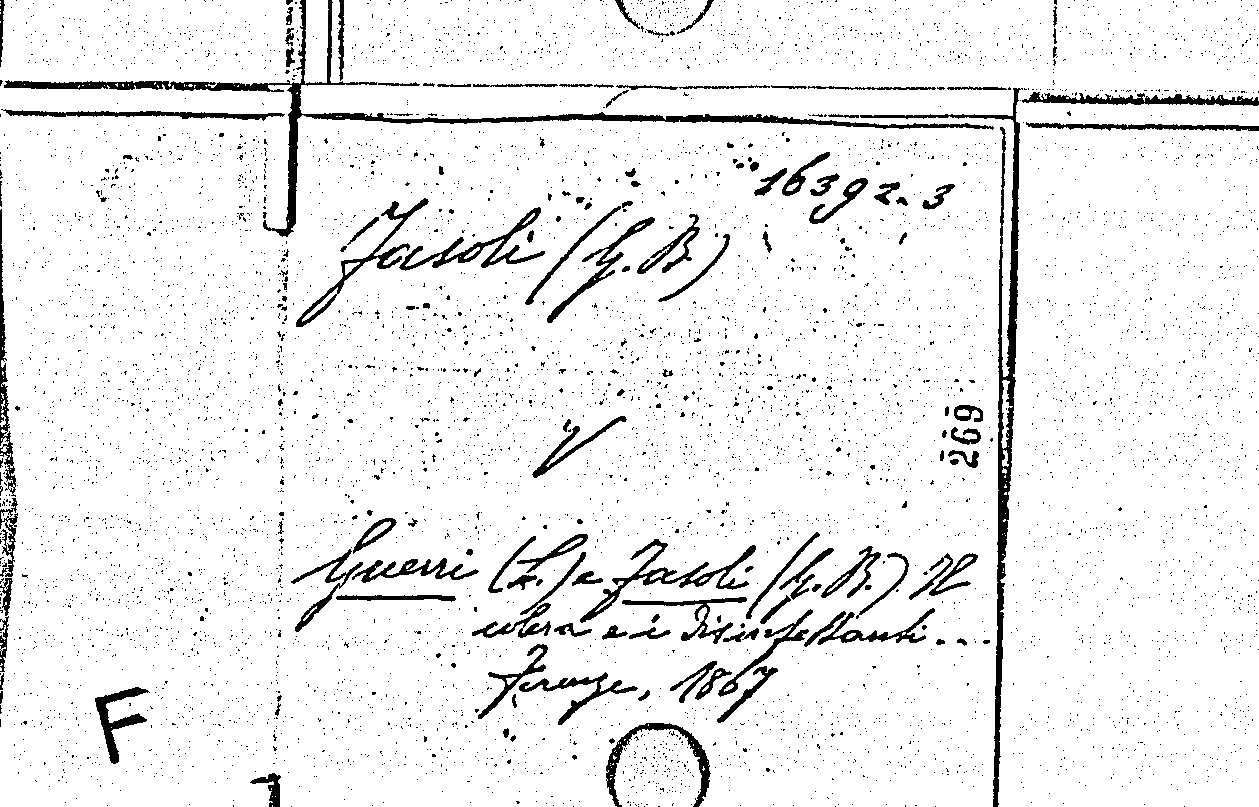 16392.3
Fasoli (G. B.)
V
269
Guerri (L.) e Fasoli (G. B.) Il
colera e i disinfettanti...
Firenze, 1867
F